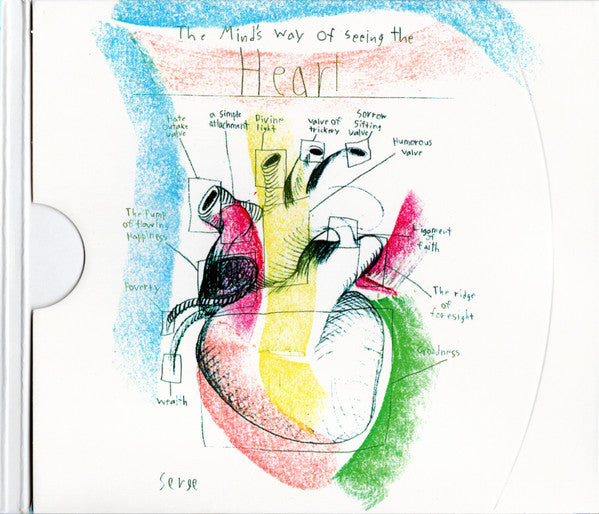 The Mind's way of seeing the
Heart
Hate
Outake
valve
a simple
attachment
Divine
light
valve of
trickery
Sorrow
Sifting
valve
Humorous
valve
The Pump
of flowing
Happiness
Ligament
of
faith
Poverty
The ridge
of foresight
Goodness
wealth
Serge